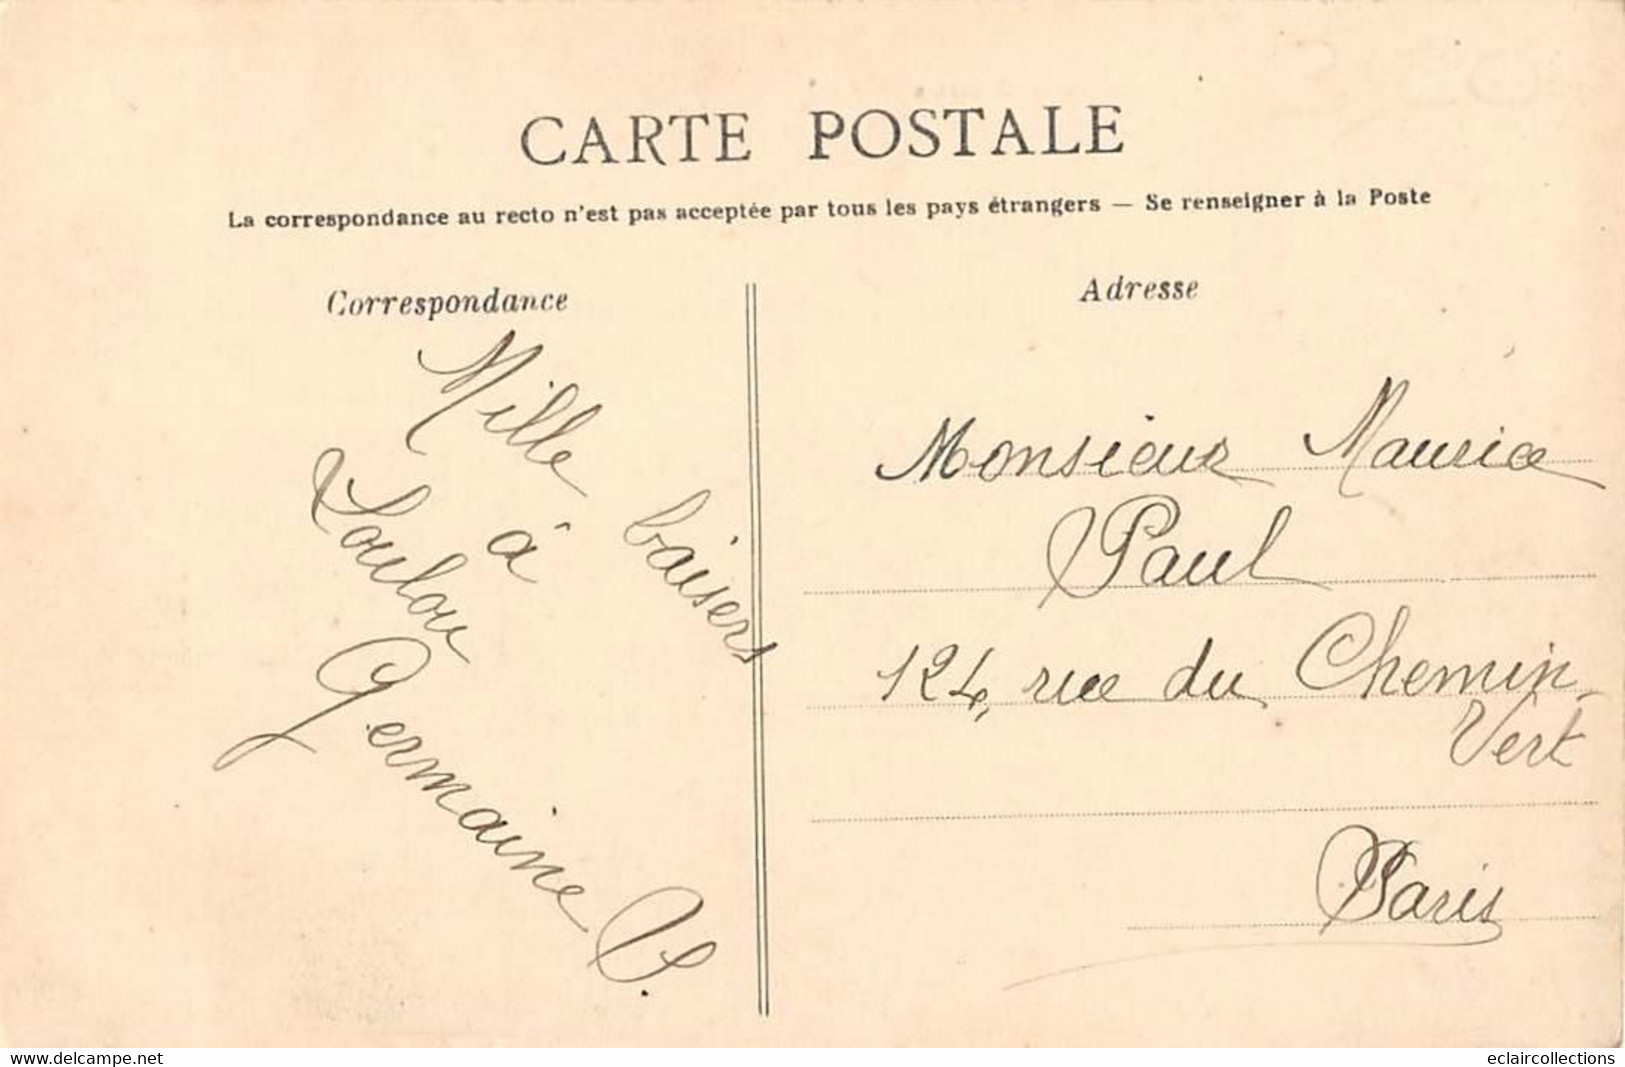 CARTE POSTALE
La correspondance au recto n'est pas acceptée par tous les pays étrangers — Se renseigner à la Poste
Correspondance
Mille baisers
à
Loulou
Germaine P.
Adresse
Monsieur Maurice
Paul
124, rue du Chemin-
Vert
Paris
www.delcampe.net
eclaircollections